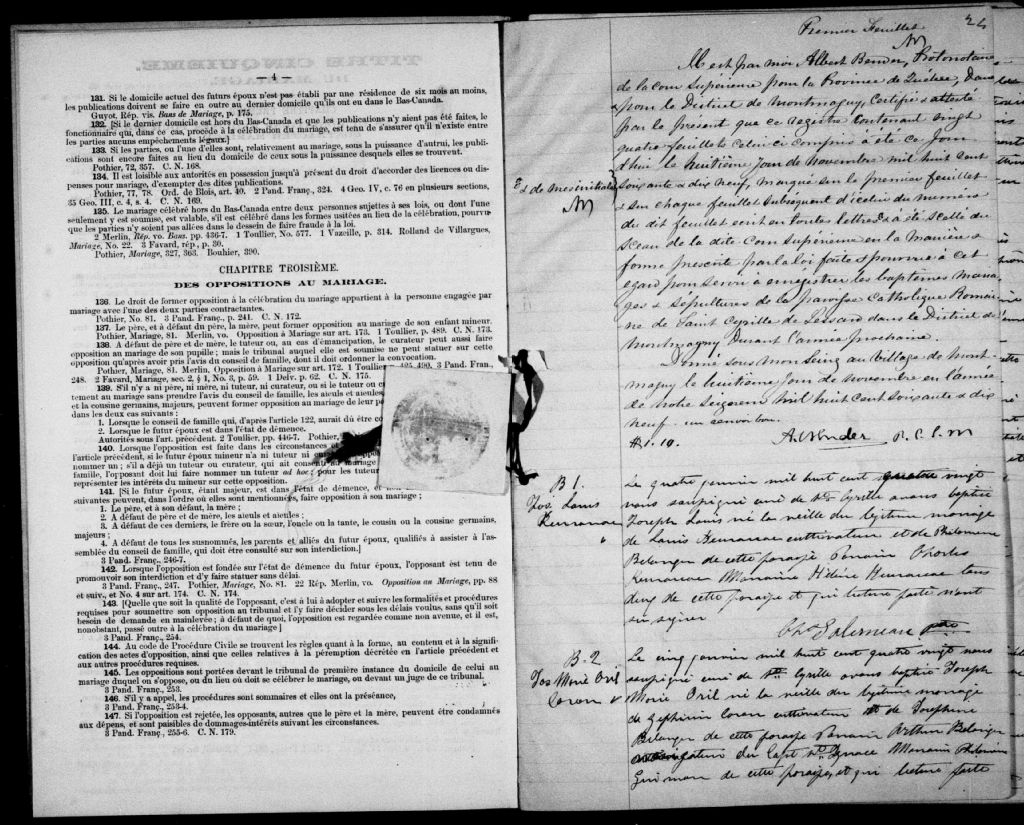 — 4 —
131. Si le domicile actuel des futurs époux n'est pas établi par une résidence de six mois au moins,
les publications doivent se faire en outre au dernier domicile qu'ils ont eu dans le Bas-Canada.
Guyot. Rép. vis. Bans de Mariage, p. 175.
132. [Si le dernier domicile est hors du Bas-Canada et que les publications n'y aient pas été faites, le
fonctionnaire qui, dans ce cas, procède à la célébration du mariage, est tenu de s'assurer qu'il n'existe entre
les parties aucuns empêchements légaux.]
133. Si les parties, ou l'une d'elles sont, relativement au mariage, sous la puissance d'autrui, les publi-
cations sont encore faites au lieu du domicile de ceux sous la puissance desquels elles se trouvent.
Pothier, 72, 357. C. N. 168.
134. Il est loisible aux autorités en possession jusqu'à présent du droit d'accorder des licences ou dis-
penses pour mariage, d'exempter des dites publications.
Pothier, 77, 78. Ord. de Blois, art. 40. 2 Pand. Franç., 324. 4 Geo. IV, c. 76 en plusieurs sections,
35 Geo. III, c. 4, s. 4. C. N. 169.
135. Le mariage célébré hors du Bas-Canada entre deux personnes sujettes à ses lois, ou dont l'une
seulement y est soumise, est valable, s'il est célébré dans les formes usitées au lieu de la célébration, pourvu
que les parties n'y soient pas allées dans le dessein de faire fraude à la loi.
2 Merlin, Rép. vo. Bans, pp. 436-7. 1 Toullier, No. 577. 1 Vazeille, p. 314. Rolland de Villargues,
Mariage, No. 22. 3 Favard, rép., p. 30.
Pothier, Mariage, 327, 363. Bouhier, 390.
CHAPITRE TROISIÈME.
DES OPPOSITIONS AU MARIAGE.
136. Le droit de former opposition à la célébration du mariage appartient à la personne engagée par
mariage avec l'une des deux parties contractantes.
Pothier, No. 81. 3 Pand. Franç., p. 241. C. N. 172.
137. Le père, et à défaut du père, la mère, peut former opposition au mariage de son enfant mineur.
Pothier, Mariage, 81. Merlin, vo. Opposition à Mariage sur art. 173. 1 Toullier, p. 489. C. N. 173.
138. A défaut de père et de mère, le tuteur ou, au cas d'émancipation, le curateur peut aussi faire
opposition au mariage de son pupille; mais le tribunal auquel elle est soumise ne peut statuer sur cette
opposition qu'après avoir pris l'avis du conseil de famille, dont il doit ordonner la convocation.
Pothier, Mariage, 81. Merlin, Opposition à Mariage sur art. 172. 1 Toullier 490. 3 Pand. Fran.,
248. 2 Favard, Mariage, sec. 2, § 1, No. 3, p. 59. 1 Delv. p. 62. C. N. 175.
139. S'il n'y a ni père, ni mère, ni tuteur, ni curateur, ou si le tuteur ou
tement au mariage sans prendre l'avis du conseil de famille, les aïeuls et aïeules
et la cousine germains, majeurs, peuvent former opposition au mariage de leur
dans les deux cas suivants :
1. Lorsque le conseil de famille qui, d'après l'article 122, aurait dû être
2. Lorsque le futur époux est dans l'état de démence.
Autorités sous l'art. précédent. 2 Toullier, pp. 446-7. Pothier,
140. Lorsque l'opposition est faite dans les circonstances
l'article précédent, si le futur époux mineur n'a ni tuteur ni
nommer un ; s'il a déjà un tuteur ou curateur, qui ait mariage
famille, l'opposant doit lui faire nommer un tuteur ad hoc, pour les
représenter les intérêts du mineur sur cette opposition.
141. [Si le futur époux, étant majeur, est dans l'état de démence, et
suivantes peuvent, dans l'ordre où elles sont mentionnées, faire opposition à son mariage ;
1. Le père, et à son défaut, la mère ;
2. A défaut de père et de mère, les aïeuls et aïeules ;
3. A défaut de ces derniers, le frère ou la sœur, l'oncle ou la tante, le cousin ou la cousine germains,
majeurs ;
4. A défaut de tous les susnommés, les parents et alliés du futur époux, qualifiés à assister à l'as-
semblée du conseil de famille, qui doit être consulté sur son interdiction.]
3 Pand. Franç., 246-7.
142. Lorsque l'opposition est fondée sur l'état de démence du futur époux, l'opposant est tenu de
promouvoir son interdiction et d'y faire statuer sans délai.
3 Pand. Franç., 247. Pothier, Mariage, No. 81. 22 Rép. Merlin, vo. Opposition au Mariage, pp. 88
et suiv., et No. 4 sur art. 174. C. N. 174.
143. [Quelle que soit la qualité de l'opposant, c'est à lui à adopter et suivre les formalités et procédures
requises pour soumettre son opposition au tribunal et l'y faire décider sous les délais voulus, sans qu'il soit
besoin de demande en mainlevée ; à défaut de quoi, l'opposition est regardée comme non avenue, et il est,
nonobstant, passé outre à la célébration du mariage]
3 Pand. Franç., 254.
144. Au code de Procédure Civile se trouvent les règles quant à la forme, au contenu et à la signifi-
cation des actes d'opposition, ainsi que celles relatives à la péremption décrétée en l'article précédent et
aux autres procédures requises.
145. Les oppositions sont portées devant le tribunal de première instance du domicile de celui au
mariage duquel on s'oppose, ou du lieu où doit se célébrer le mariage, ou devant un juge de ce tribunal.
3 Pand. Franç., 253.
146. S'il y a appel, les procédures sont sommaires et elles ont la préséance,
3 Pand. Franç., 253-4.
147. Si l'opposition est rejetée, les opposants, autres que le père et la mère, peuvent être condamnés
aux dépens, et sont paisibles de dommages-intérêts suivant les circonstances.
3 Pand. Franç., 255-6. C. N. 179.
Premier Feuillet
Il est par moi Albert Bender, Protonotaire
de la Cour Supérieure pour la Province de Québec, Dans
& pour le District de Montmagny, Certifié & attesté
par le présent que ce registre contenant vingt
quatre feuillets celui ci compris a été ce jour
d'hui le huitième jour de Novembre mil huit cent
soixante & dix neuf, marqué sur le premier feuillet
& sur chaque feuillet subséquent d'icelui du numéro
du dit feuillet écrit en toutes lettres & a été scellé du
sceau de la dite Cour Supérieure en la manière &
forme prescrite par la loi faite & pourvue à cet
égard pour servir à enrégistrer les baptêmes maria-
ges & sépultures de la paroisse Catholique Romai-
ne de Saint Cyrille de Lessard dans le District de
Montmagny Durant l'année prochaine.
Donné sous mon seing au Village de Mont-
magny le huitième jour de Novembre en l'année
de notre Seigneur mil huit cent soixante & dix
neuf.
A. Bender P. C. S. M
B 1.
Jos. Louis
Le quatre janvier mil huit cent quatre vingt
nous soussigné curé de St. Cyrille avons baptisé
Joseph Louis né la veille du légitime mariage
de Louis cultivateur et de Philomène
Belanger de cette paroisse Parrain Charles
Marraine Hélène tous
deux de cette paroisse et qui lecture faite n'ont
su signer
B. 2
Jos Marie Oril
Caron
Le cinq janvier mil huit cent quatre vingt nous
soussigné curé de St. Cyrille avons baptisé Joseph
Marie Oril né la veille du légitime mariage
de Zephirin Caron cultivateur et de Josephine
Belanger de cette paroisse Parrain Arthur Belanger
navigateur du Cap St. Ignace Marraine
de cette paroisse, et qui lecture faite